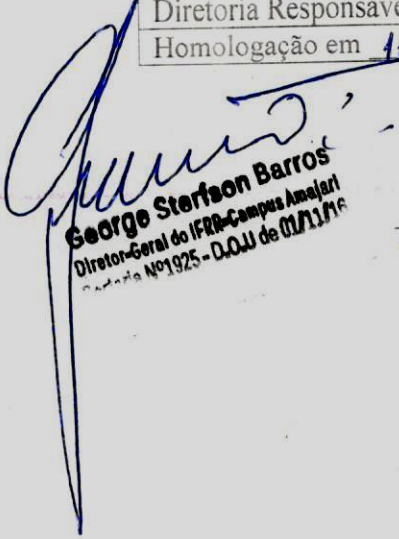 Diretoria Responsáve
Homologação em 1
George Sterfson Barros
Diretor-Geral do IFRR-Campus Amajari
Nº1925 - D.O.U de 01/11/16